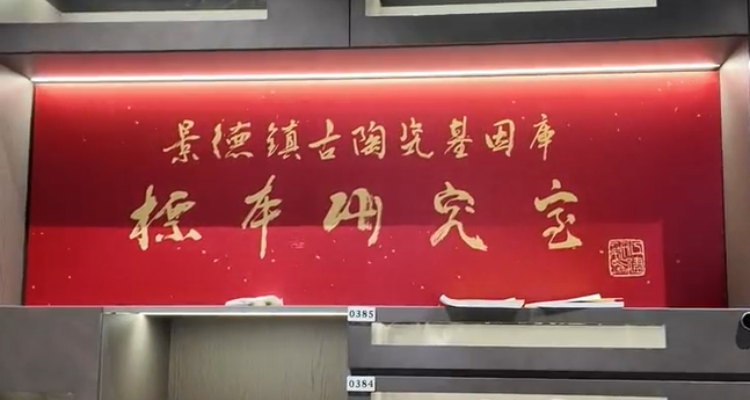 景德镇古陶瓷基因库
标本研究室
0385
0384